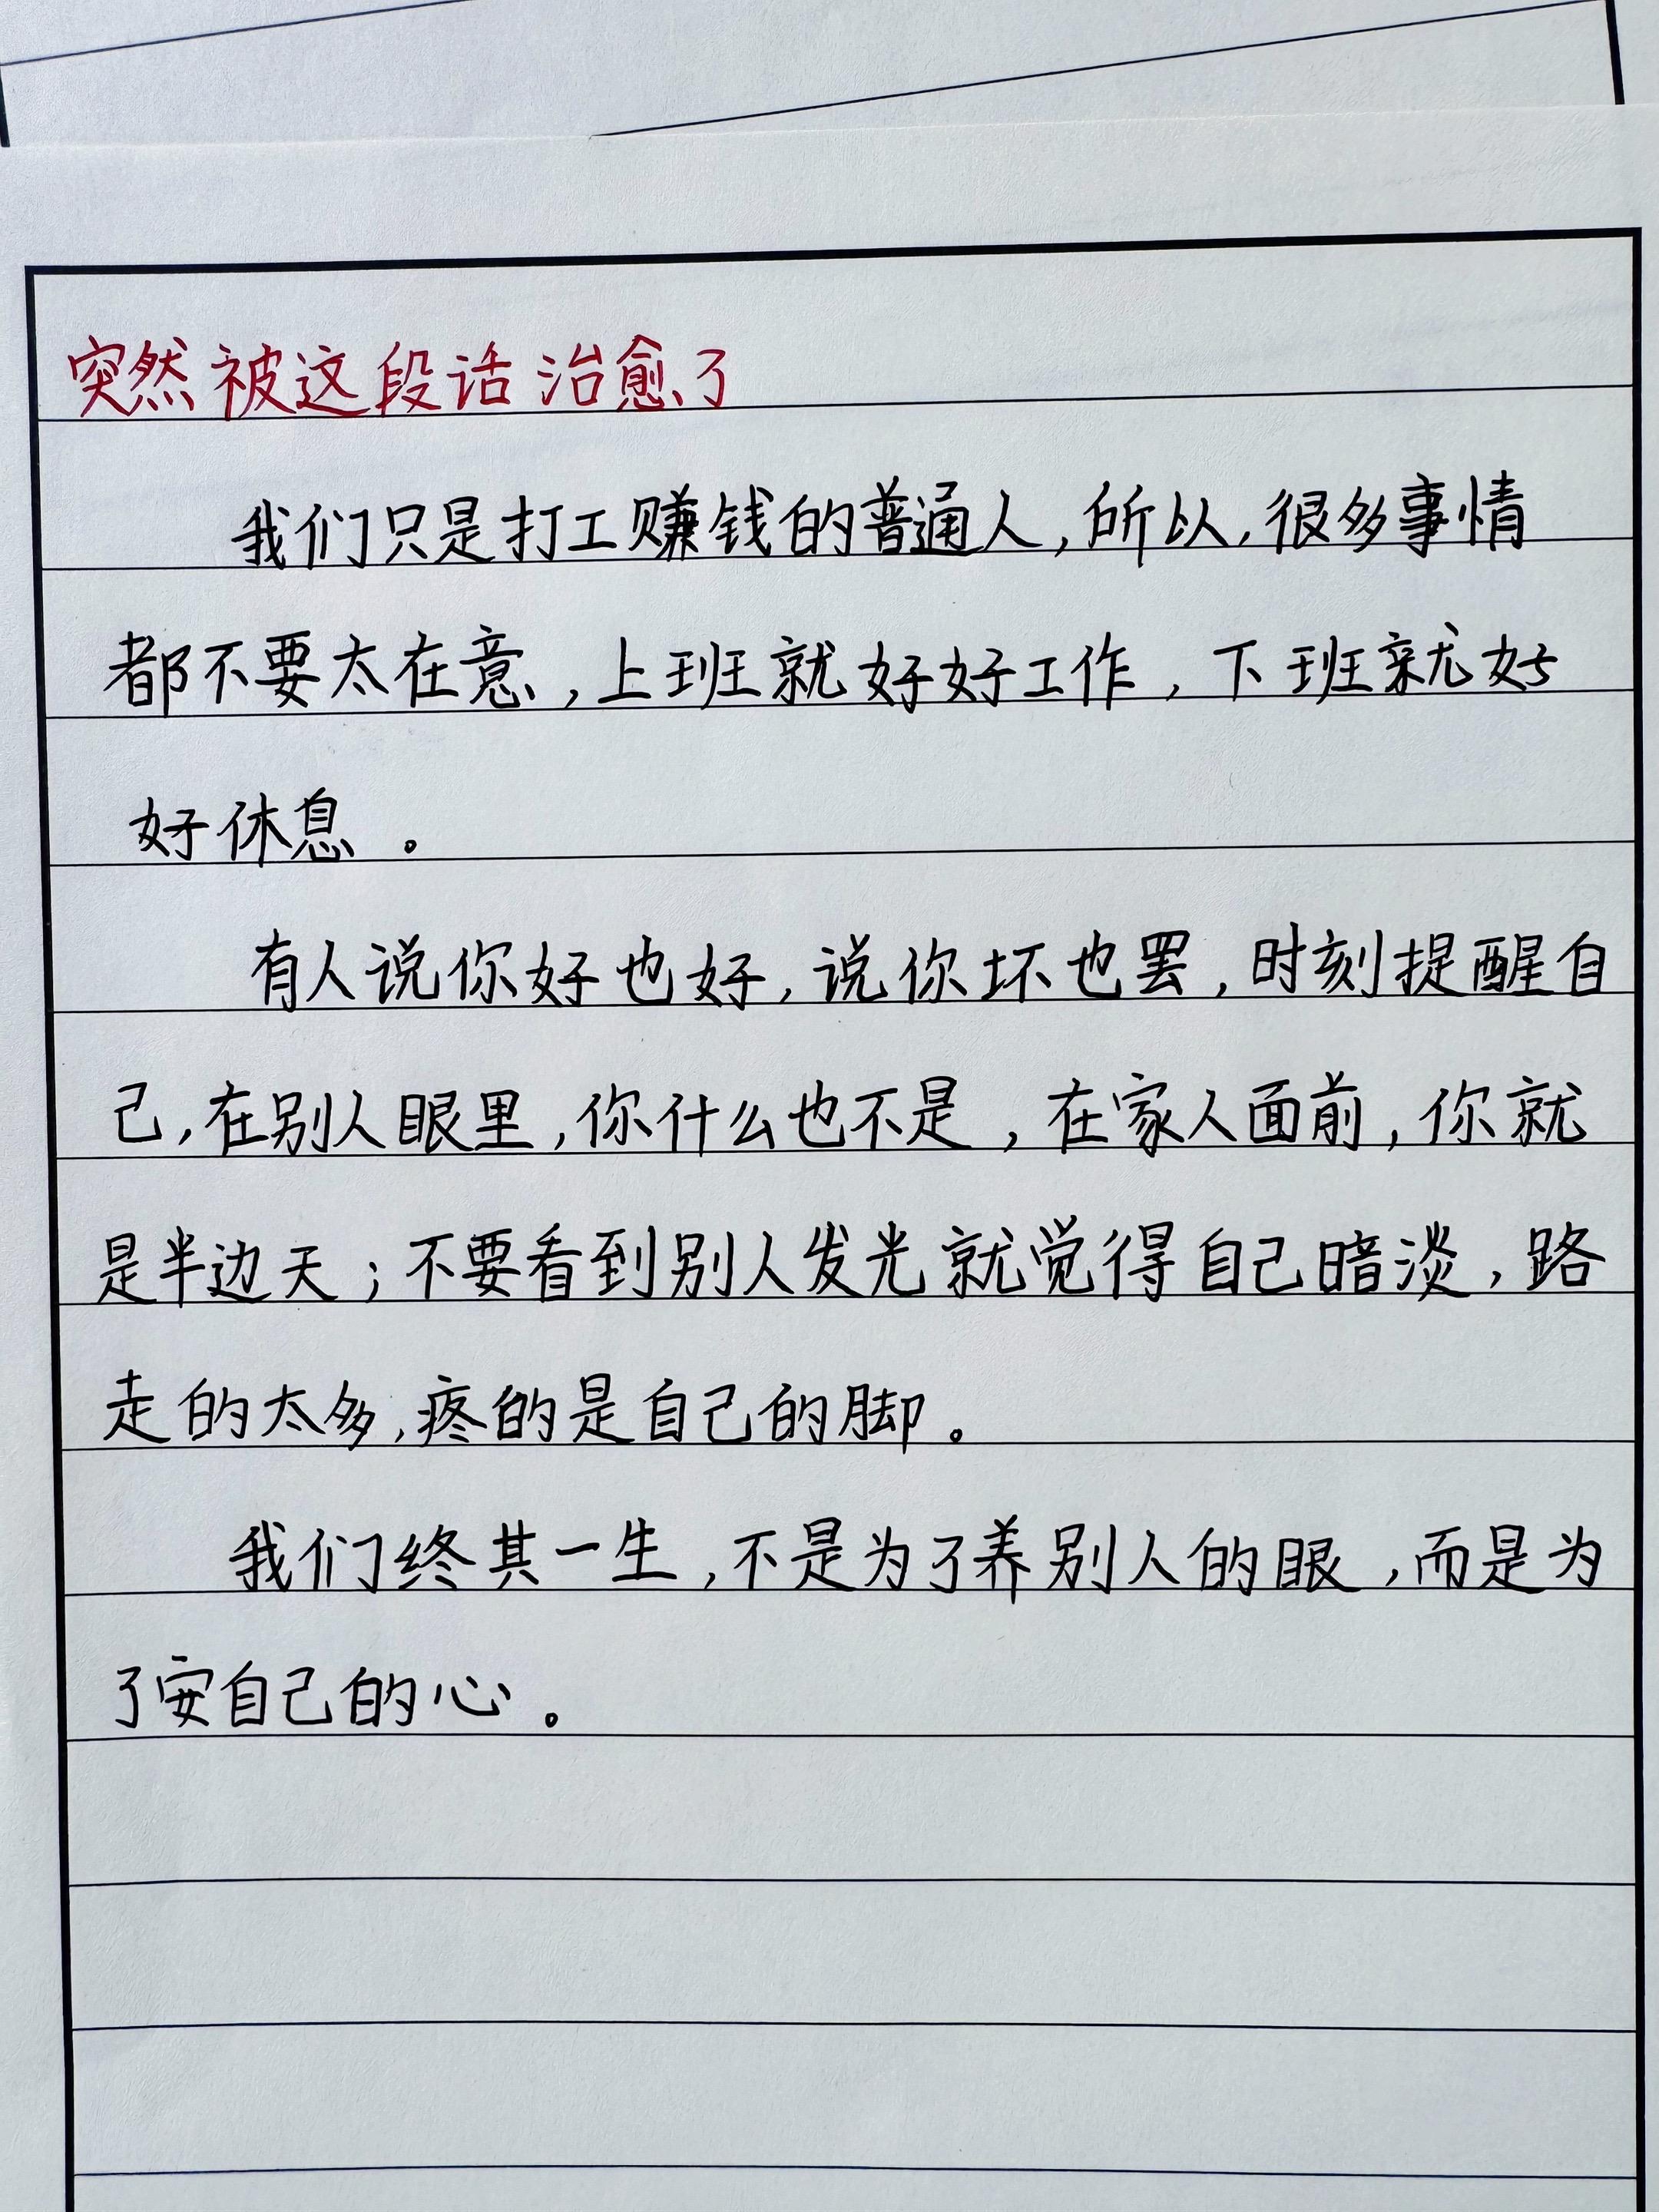 突然被这段话治愈了
我们只是打工赚钱的普通人,所以,很多事情
都不要太在意,上班就好好工作,下班就好
好休息。
有人说你好也好,说你坏也罢,时刻提醒自
己,在别人眼里,你什么也不是,在家人面前,你就
是半边天;不要看到别人发光就觉得自己暗淡,路
走的太多,疼的是自己的脚。
我们终其一生,不是为了养别人的眼,而是为
了安自己的心。